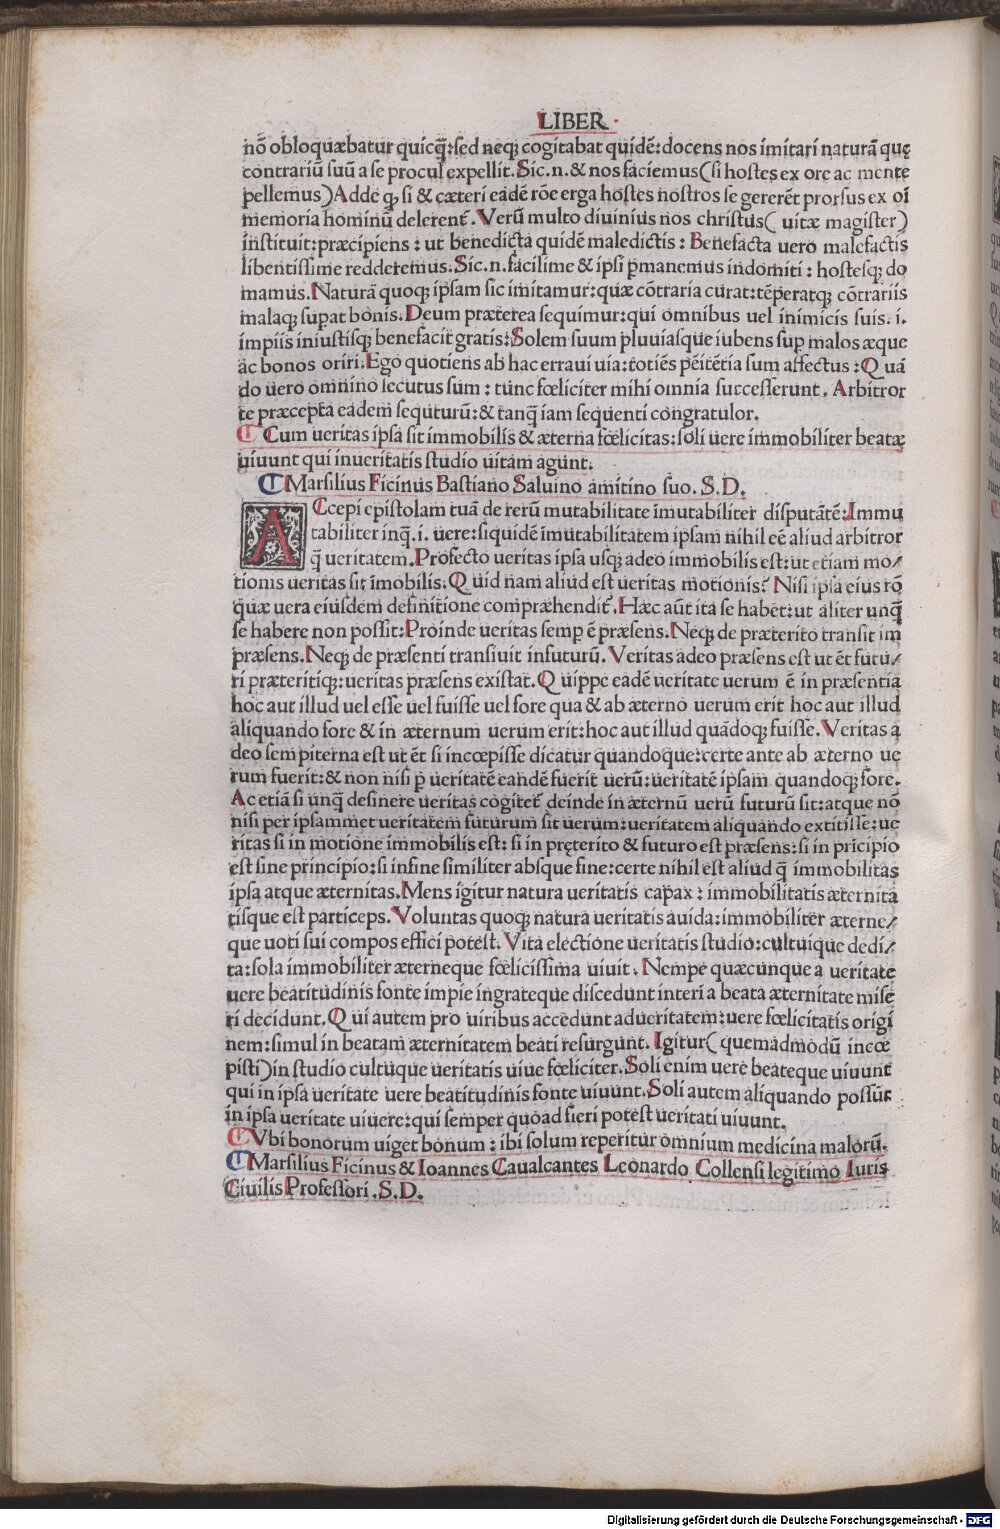 LIBER
nō obloquæbatur quicq̄:sed neq; cogitabat quidē:docens nos imitari naturā quę
contrariū suū a se procul expellit.Sic.n.& nos faciemus(si hostes ex ore ac mente
pellemus)Adde q; si & cæteri eadē rōe erga hostes nostros se gererēt prorsus ex oī
memoria hominū delerent̄.Verū multo diuinius nos christus( uitæ magister)
instituit:præcipiens : ut benedicta quidē maledictis : Benefacta uero malefactis
libentissime redderemus.Sic.n.facilime & ipsi p̄manemus indomiti : hostesq; do
mamus.Naturā quoq; ipsam sic imitamur:quæ cōtraria curat:tēperatq; cōtrariis
malaq; supat bonis.Deum præterea sequimur:qui omnibus uel inimicis suis. i.
impiis iniustisq; benefacit gratis:Solem suum pluuiasque iubens sup malos æque
ac bonos oriri.Ego quotiens ab hac erraui uia:totiēs pēitētia sum affectus :Quā
do uero omnino secutus sum : tunc fœliciter mihi omnia successerunt. Arbitror
te præcepta eadem sequturū:& tanq̄ iam sequenti congratulor.
Cum ueritas ipsa sit immobilis & æterna fœlicitas:soli uere immobiliter beatæ
uiuunt qui inueritatis studio uitam agunt.
Marsilius Ficinus Bastiano Saluino amitino suo. S.D.
ACcepi epistolam tuā de rerū mutabilitate īmutabiliter disputātē:Immu
tabiliter inq̄.i. uere:siquidē īmutabilitatem ipsam nihil eē aliud arbitror
q̄ ueritatem.Profecto ueritas ipsa usq; adeo immobilis est:ut etiam mo/
tionis ueritas sit īmobilis.Quid nam aliud est ueritas motionis? Nisi ipsa eius rō
quæ uera eiusdem definitione compræhendit̄.Hæc aūt ita se habet:ut aliter unq̄
se habere non possit:Proinde ueritas semp ē præsens.Neq; de præterito transit im
præsens.Neq; de præsenti transiuit infuturū.Veritas adeo præsens est ut ēt futu/
ri præteritiq;:ueritas præsens existat.Quippe eadē ueritate uerum ē in præsentia
hoc aut illud uel esse uel fuisse uel fore qua & ab æterno uerum erit hoc aut illud
aliquando fore & in æternum uerum erit:hoc aut illud quādoq; fuisse.Veritas a
deo sempiterna est ut ēt si incœpisse dicatur quandoque:certe ante ab æterno ue
rum fuerit:& non nisi p̄ ueritatē eandē fuerit uerū:ueritatē ipsam quandoq; fore.
Ac etiā si unq̄ desinere ueritas cogitet̄ deinde in æternū uerū futurū sit:atque nō
nisi per ipsammet ueritatem futurum sit uerum:ueritatem aliquando extitisse:ue
ritas si in motione immobilis est: si in pręterito & futuro est præsens:si in pricipio
est sine principio:si infine similiter absque fine:certe nihil est aliud q̄ immobilitas
ipsa atque æternitas.Mens igitur natura ueritatis capax : immobilitatis æternita
tisque est particeps.Voluntas quoq; natura ueritatis auida:immobiliter æterne/
que uoti sui compos effici potest.Vita electione ueritatis studio:cultuique dedi/
ta:sola immobiliter æterneque fœlicissima uiuit. Nempe quæcunque a ueritate
uere beatitudinis fonte impie ingrateque discedunt interi a beata æternitate mise
ri decidunt.Qui autem pro uiribus accedunt adueritatem:uere fœlicitatis origi
nem:simul in beatam æternitatem beati resurgunt. Igitur( quemadmodū incœ
pisti)in studio cultuque ueritatis uiue fœliciter.Soli enim uere beateque uiuunt
qui in ipsa ueritate uere beatitudinis fonte uiuunt.Soli autem aliquando possūt
in ipsa ueritate uiuere:qui semper quoad fieri potest ueritati uiuunt.
Vbi bonorum uiget bonum : ibi solum reperitur omnium medicina malorū.
Marsilius Ficinus & Ioannes Caualcantes Leonardo Collensi legitimo Iuris
Ciuilis Professori.S.D.
Digitalisierung gefördert durch die Deutsche Forschungsgemeinschaft - DFG